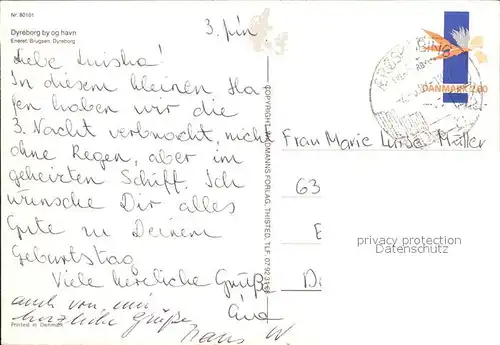 Nr. 80101
Dyreborg by og havn
Eneret: Brugsen, Dyreborg
3. Juni
Liebe Luisha!
In diesem kleinen Ha-
fen haben wir die
3. Nacht verbracht, nicht
ohne Regen, aber im
geheizten Schiff. Ich
wünsche Dir alles
Gute zu Deinem
Geburtstag
Viele herzliche Grüße
auch von mir
herzliche Grüße
Hans W.
Printed in Denmark
DANMARK
Frau Marie Luise Müller
63
privacy protection
Datenschutz